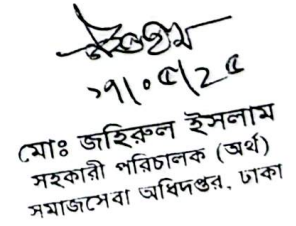 ১৭/০৫/২৫
মোঃ জহিরুল ইসলাম
সহকারী পরিচালক (অর্থ)
সমাজসেবা অধিদপ্তর, ঢাকা